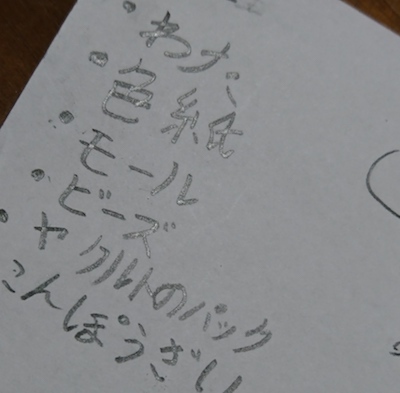 ・わた
・色紙
・モール
・ビーズ
・ヤクルトのパック
こんぽうざい